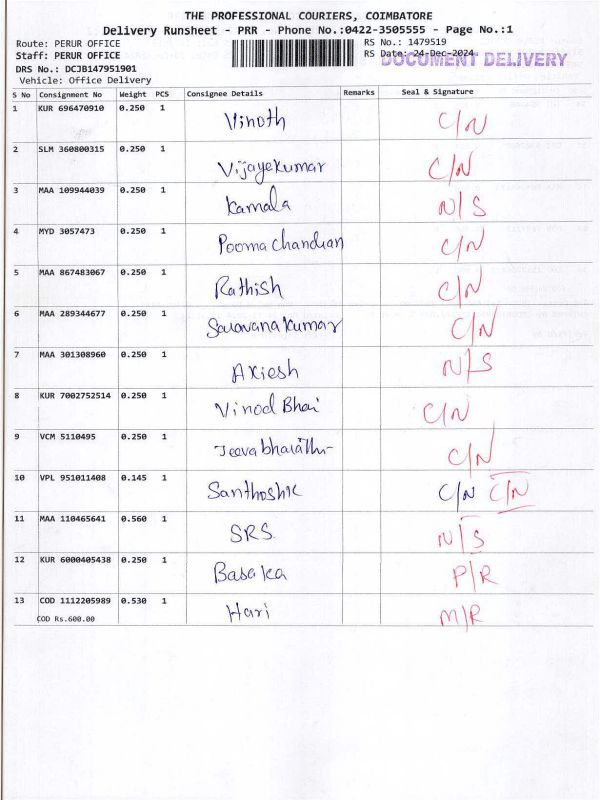 THE PROFESSIONAL COURIERS, COIMBATORE
Delivery Runsheet - PRR - Phone No.:0422-3505555 - Page No.:1
Route: PERUR OFFICE RS No.: 1479519
Staff: PERUR OFFICE RS Date: 24-Dec-2024 DOCUMENT DELIVERY
DRS No.: DCJB147951901
Vehicle: Office Delivery
S No Consignment No Weight PCS Consignee Details Remarks Seal & Signature
1 KUR 696470910 0.250 1 Vinoth C/N
2 SLM 360800315 0.250 1 Vijayekumar C/N
3 MAA 109944039 0.250 1 Kamala N/S
4 MYD 3057473 0.250 1 Poornachandran C/N
5 MAA 867483067 0.250 1 Rathish C/N
6 MAA 289344677 0.250 1 Saravanakumar C/N
7 MAA 301308960 0.250 1 N/S
8 KUR 7002752514 0.250 1 Vinod Bhai C/N
9 VCM 5110495 0.250 1 Jeevabharathi C/N
10 VPL 951011408 0.145 1 Santhoshk C/N C/N
11 MAA 110465641 0.560 1 SRS N/S
12 KUR 6000405438 0.250 1 Basaka P/R
13 COD 1112205989 0.530 1 Hari M/R
COD Rs.600.00